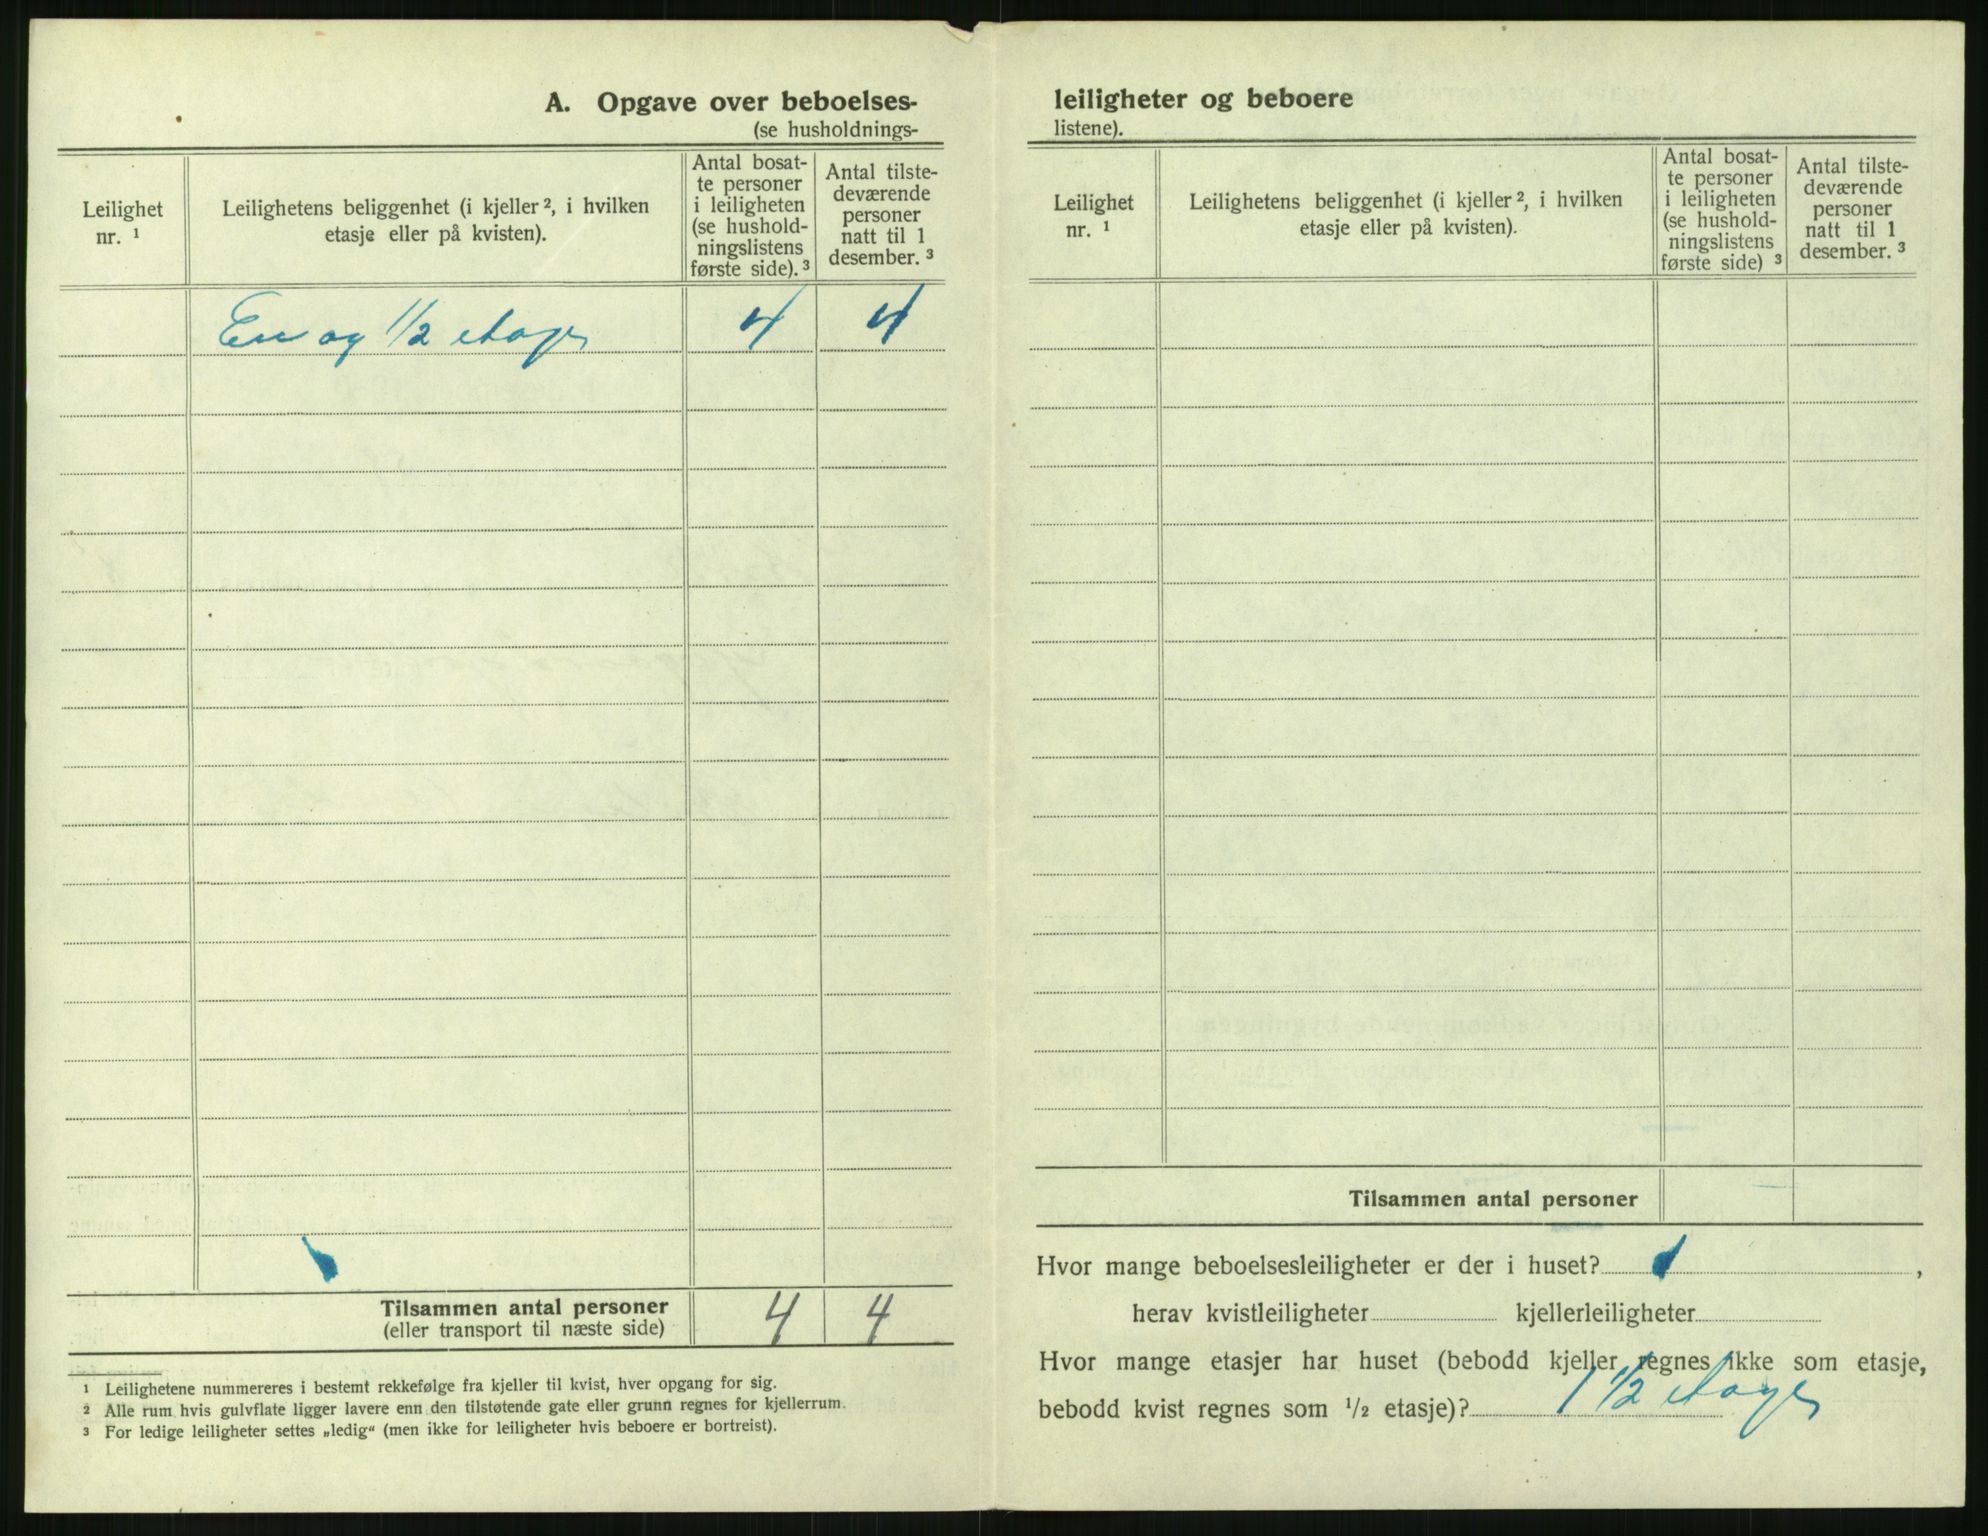 A. Opgave over beboelses-
(se husholdnings-
Leilighet
nr. ¹
Leilighetens beliggenhet (i kjeller ², i hvilken
etasje eller på kvisten).
Antal bosat-
te personer
i leiligheten
(se hushold-
ningslistens
første side). ³
Antal tilste-
deværende
personer
natt til 1
desember. ³
En og 1/2 etage 4 4
Tilsammen antal personer 4 4
(eller transport til næste side)
¹ Leilighetene nummereres i bestemt rekkefølge fra kjeller til kvist, hver opgang for sig.
² Alle rum hvis gulvflate ligger lavere enn den tilstøtende gate eller grunn regnes for kjellerrum.
³ For ledige leiligheter settes „ledig“ (men ikke for leiligheter hvis beboere er bortreist).
leiligheter og beboere
listene).
Leilighet
nr. ¹
Leilighetens beliggenhet (i kjeller ², i hvilken
etasje eller på kvisten).
Antal bosat-
te personer
i leiligheten
(se hushold-
ningslistens
første side) ³
Antal tilste-
deværende
personer
natt til 1
desember. ³
Tilsammen antal personer
Hvor mange beboelsesleiligheter er der i huset? 1,
herav kvistleiligheter kjellerleiligheter
Hvor mange etasjer har huset (bebodd kjeller regnes ikke som etasje,
bebodd kvist regnes som ½ etasje)? 1 1/2 etage